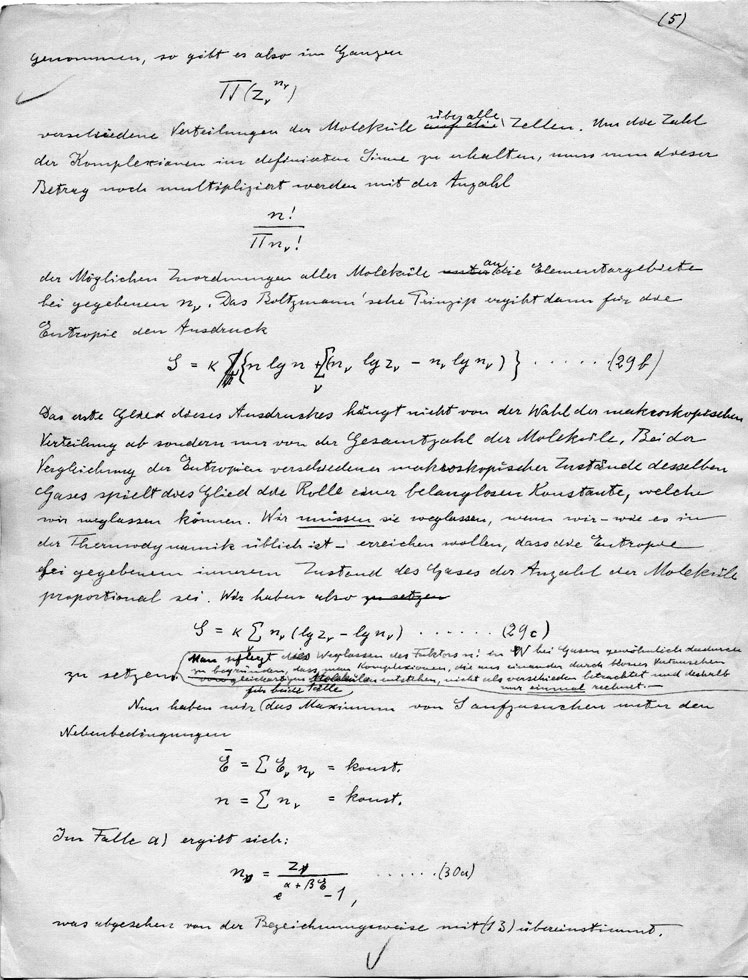 (5)
genommen, so gibt es also im Ganzen
Π(z_ν^{n_ν})
verschiedene Verteilungen der Moleküle ~~auf die~~ über alle Zellen. Um die Zahl
der Komplexionen im definierten Sinne zu erhalten, muss nun dieser
Betrag noch multipliziert werden mit der Anzahl
n! / Πn_ν!
der Möglichen Zuordnungen aller Moleküle an die Elementargebiete
bei gegebenen n_ν. Das Boltzmann'sche Prinzip ergibt dann für die
Entropie den Ausdruck
S = κ {n lg n + Σ_ν (n_ν lg z_ν - n_ν lg n_ν)} . . . . . . (29b)
Das erste Glied dieses Ausdruckes hängt nicht von der Wahl der makroskopischen
Verteilung ab sondern nur von der Gesamtzahl der Moleküle. Bei der
Vergleichung der Entropien verschiedener makroskopischer Zustände desselben
Gases spielt dies Glied die Rolle einer belanglosen Konstante, welche
wir weglassen können. Wir müssen sie weglassen, wenn wir – wie es in
der Thermodynamik üblich ist – erreichen wollen, dass die Entropie
bei gegebenem innerem Zustand des Gases der Anzahl der Moleküle
proportional sei. Wir haben also ~~zu setzen~~
S = κ Σ n_ν (lg z_ν - lg n_ν) . . . . . . (29c)
zu setzen. Man pflegt dies Weglassen des Faktors n! in W bei Gasen gewöhnlich dadurch
zu begründen, dass man Komplexionen, die aus einander durch blosses Vertauschen
von gleichartigen Molekülen entstehen, nicht als verschieden betrachtet und deshalb
nur einmal rechnet. –
Nun haben wir für beide Fälle das Maximum von S aufzusuchen unter den
Nebenbedingungen
Ē = Σ E_ν n_ν = konst.
n = Σ n_ν = konst.
Im Falle a) ergibt sich:
n_ν = z_ν / (e^{α + βE} - 1), . . . . . . (30a)
was abgesehen von der Bezeichnungsweise mit (13) übereinstimmt.